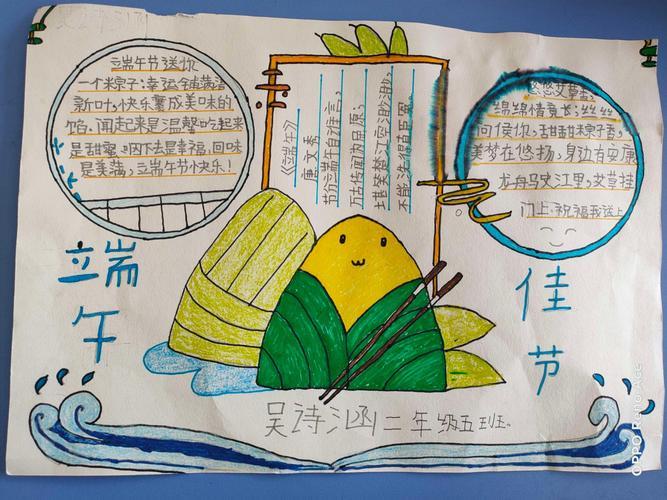 端午节送你
一个粽子:幸运铺满着
新叶,快乐裹成美味的
馅,闻起来是温馨,吃起来
是甜蜜,咽下去是幸福,回味
是美满,端午节快乐!
《端午》
唐 文秀
节分端午自谁言,
万古传闻为屈原;
堪笑楚江空渺渺,
不能洗得直臣冤。
悠悠艾草香,
绵绵情意长;丝丝
问候你,甜甜粽子香,
美梦在悠扬,身边有安康
龙舟驶江里,艾草挂
门上.祝福我送上
端午
佳节
吴诗涵二年级五班.
OPPO Reno Ace